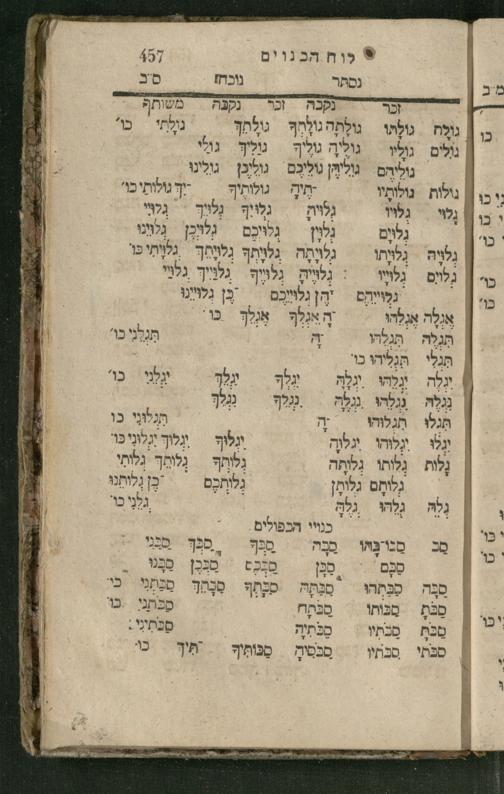 457 לוח הכנוים
נסתר נוכח ס״ב
זכר נקבה זכר נקבה משותף
גולה גולתו גולתה גולתך גולתך גולתי כו׳
גולים גוליו גוליה גוליך גוליך גולי
גוליהם גוליהן גוליכם גוליכן גולינו
גולות גולותיו ־תיה גולותיך ־יך גולותי כו׳
גלוי גלויו גלויה גלויך גלויך גלויי
גלוים גלוין גלויכם גלויכן גלוינו
גלויה גלויתו גלויתה גלויתך גלויתך גלויתי כו׳
גלוים גלוייו גלוייה גלוייך גלוייך גלויי
גלוייהם ־הן גלוייכם ־כן גלויינו
אגלה אגלהו ־ה אגלך אגלך כו׳
תגלה תגלהו ־ה תגלני כו׳
תגלי תגליהו כו׳
יגלה יגלהו יגלה יגלך יגלך יגלני כו׳
נגלה נגלהו נגלה נגלך נגלך
תגלו תגלוהו ־ה תגלוני כו
יגלו יגלוהו יגלוה יגלוך יגלוך יגלוני כו׳
גלות גלותו גלותה גלותך גלותך גלותי
גלותם גלותן גלותכם ־כן גלותנו
גלה גלהו גלה גלני כו׳
כנויי הכפולים
סב סבו־בהו סבה סבך סבך סבני
סבם סבן סבכם סבכן סבנו
סבה סבתהו סבתה סבתך סבתך סבתני כו׳
סבת סבותו סבתה סבתני כו׳
סבת סבתיו סבתיה סבתיני
סבתי סבתיו סבותיך ־תיך כו׳